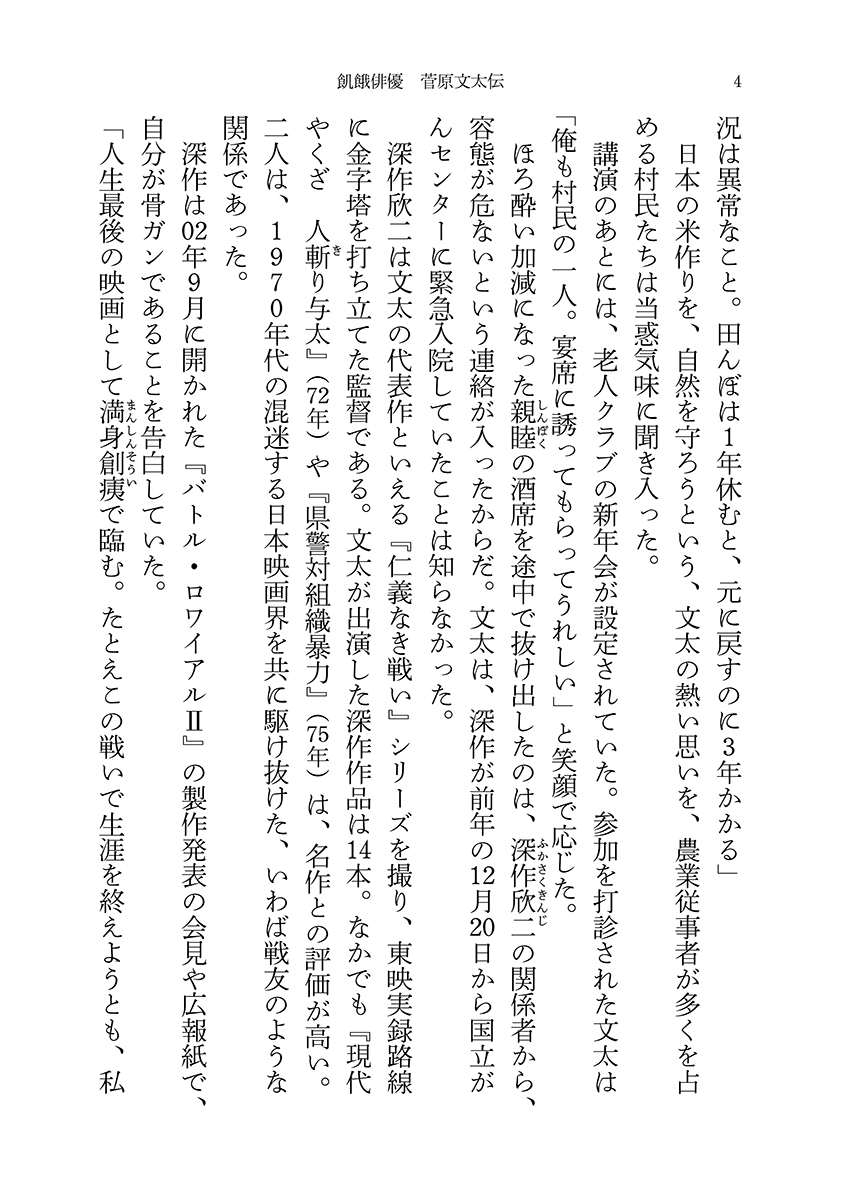 飢餓俳優　菅原文太伝
4
況は異常なこと。田んぼは1年休むと、元に戻すのに3年かかる」
　日本の米作りを、自然を守ろうという、文太の熱い思いを、農業従事者が多くを占
める村民たちは当惑気味に聞き入った。
　講演のあとには、老人クラブの新年会が設定されていた。参加を打診された文太は
「俺も村民の一人。宴席に誘ってもらってうれしい」と笑顔で応じた。
　ほろ酔い加減になった親睦の酒席を途中で抜け出したのは、深作欣二の関係者から、
しんぼく
ふかさくきんじ
容態が危ないという連絡が入ったからだ。文太は、深作が前年の12月20日から国立が
んセンターに緊急入院していたことは知らなかった。
　深作欣二は文太の代表作といえる『仁義なき戦い』シリーズを撮り、東映実録路線
に金字塔を打ち立てた監督である。文太が出演した深作作品は14本。なかでも『現代
やくざ　人斬り与太』（72年）や『県警対組織暴力』（75年）は、名作との評価が高い。
き
二人は、1970年代の混迷する日本映画界を共に駆け抜けた、いわば戦友のような
関係であった。
　深作は02年9月に開かれた『バトル・ロワイアルⅡ』の製作発表の会見や広報紙で、
自分が骨ガンであることを告白していた。
「人生最後の映画として満身創痍で臨む。たとえこの戦いで生涯を終えようとも、私
まんしんそうい